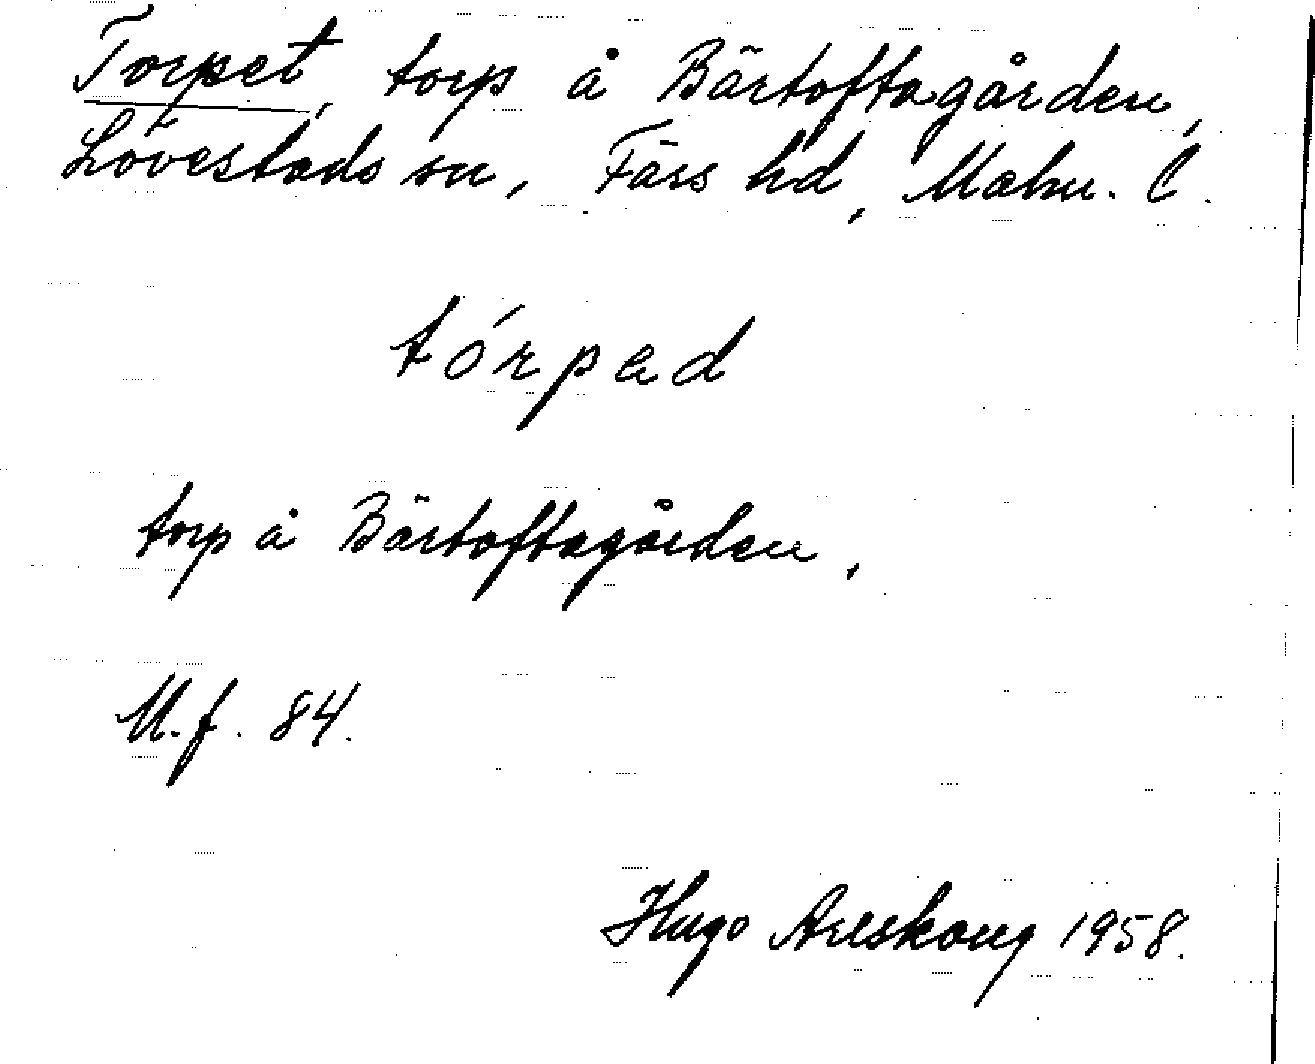 Torpet, torp å Bärtoftagården,
Lövestads sn, Färs hd, Malm. l.
tórpad
torp å Bärtoftagården.
M.f. 84.
Hugo Areskoug 1958.